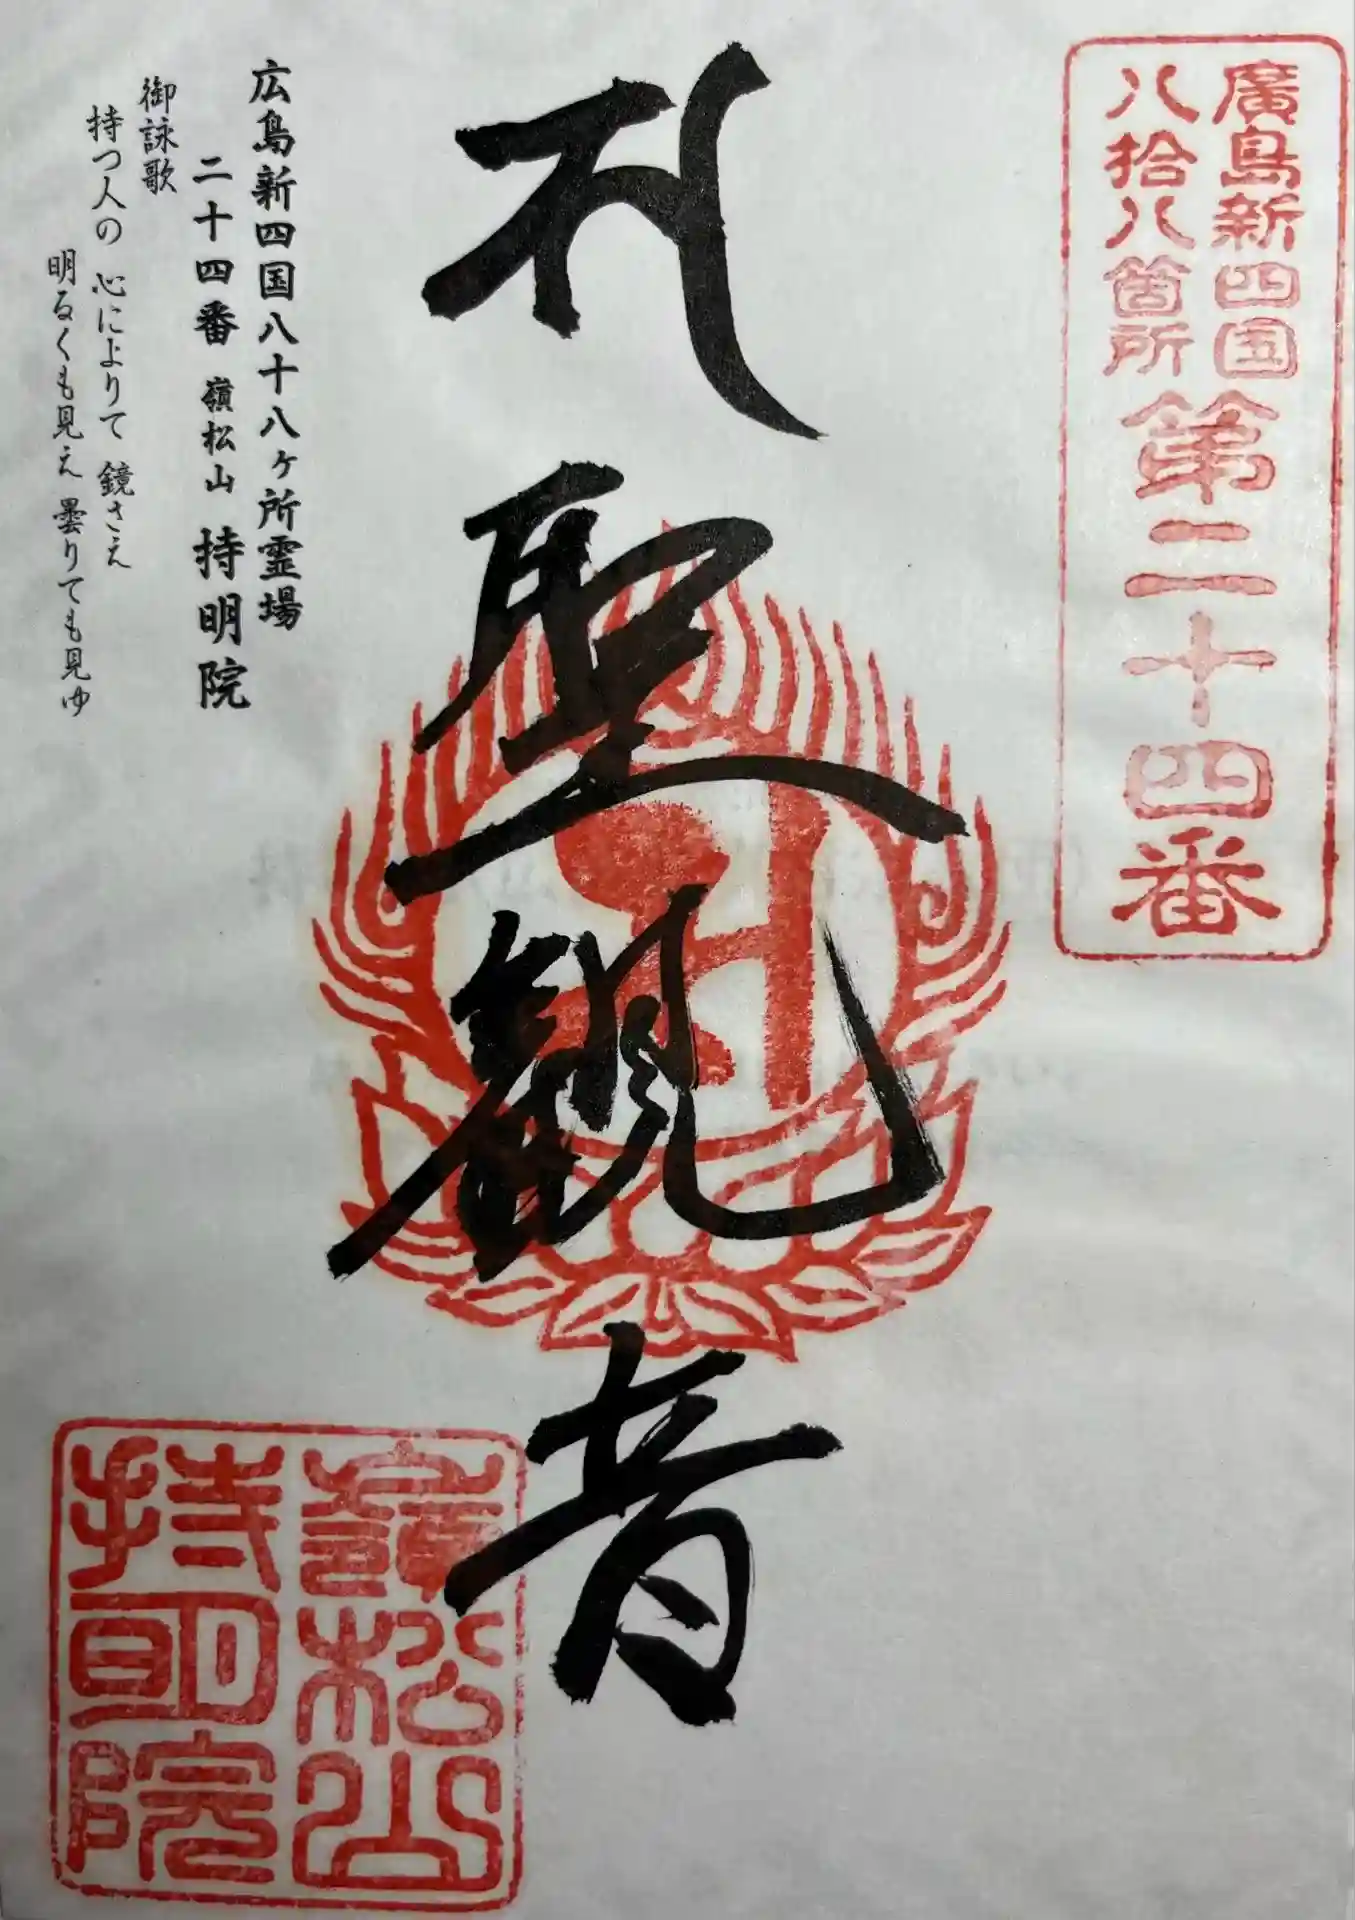 廣島新四国
八拾八箇所
第二十四番
聖観音
嶺松山
持明院
広島新四国八十八ヶ所霊場
二十四番 嶺松山 持明院
御詠歌
持つ人の 心によりて 鏡さえ
明るくも見え 曇りても見ゆ